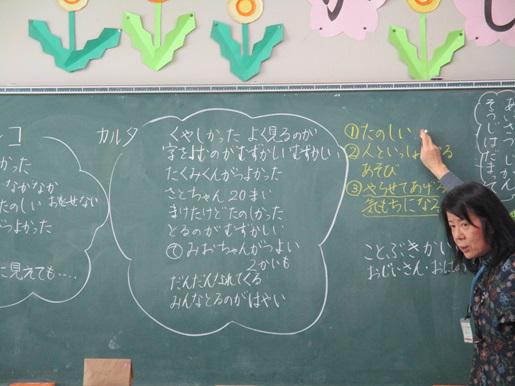 カルタ
くやしかった よく見るのが
字をよむのがむずかしい むずかしい
たくみくんがつよかった
さとちゃん20まい
まけたけどたのしかった
とるのがむずかしい
みおちゃんがつよい
2かいも
だんだんなれてくる
みんなとるのがはやい
コ
かった
なかなか
たのしい おせない
つよかった
に見えても....
①たのしい
②人といっしょ
あそび
③やらせてあげる
気もちになる
ことぶきかい
おじいさん・おば